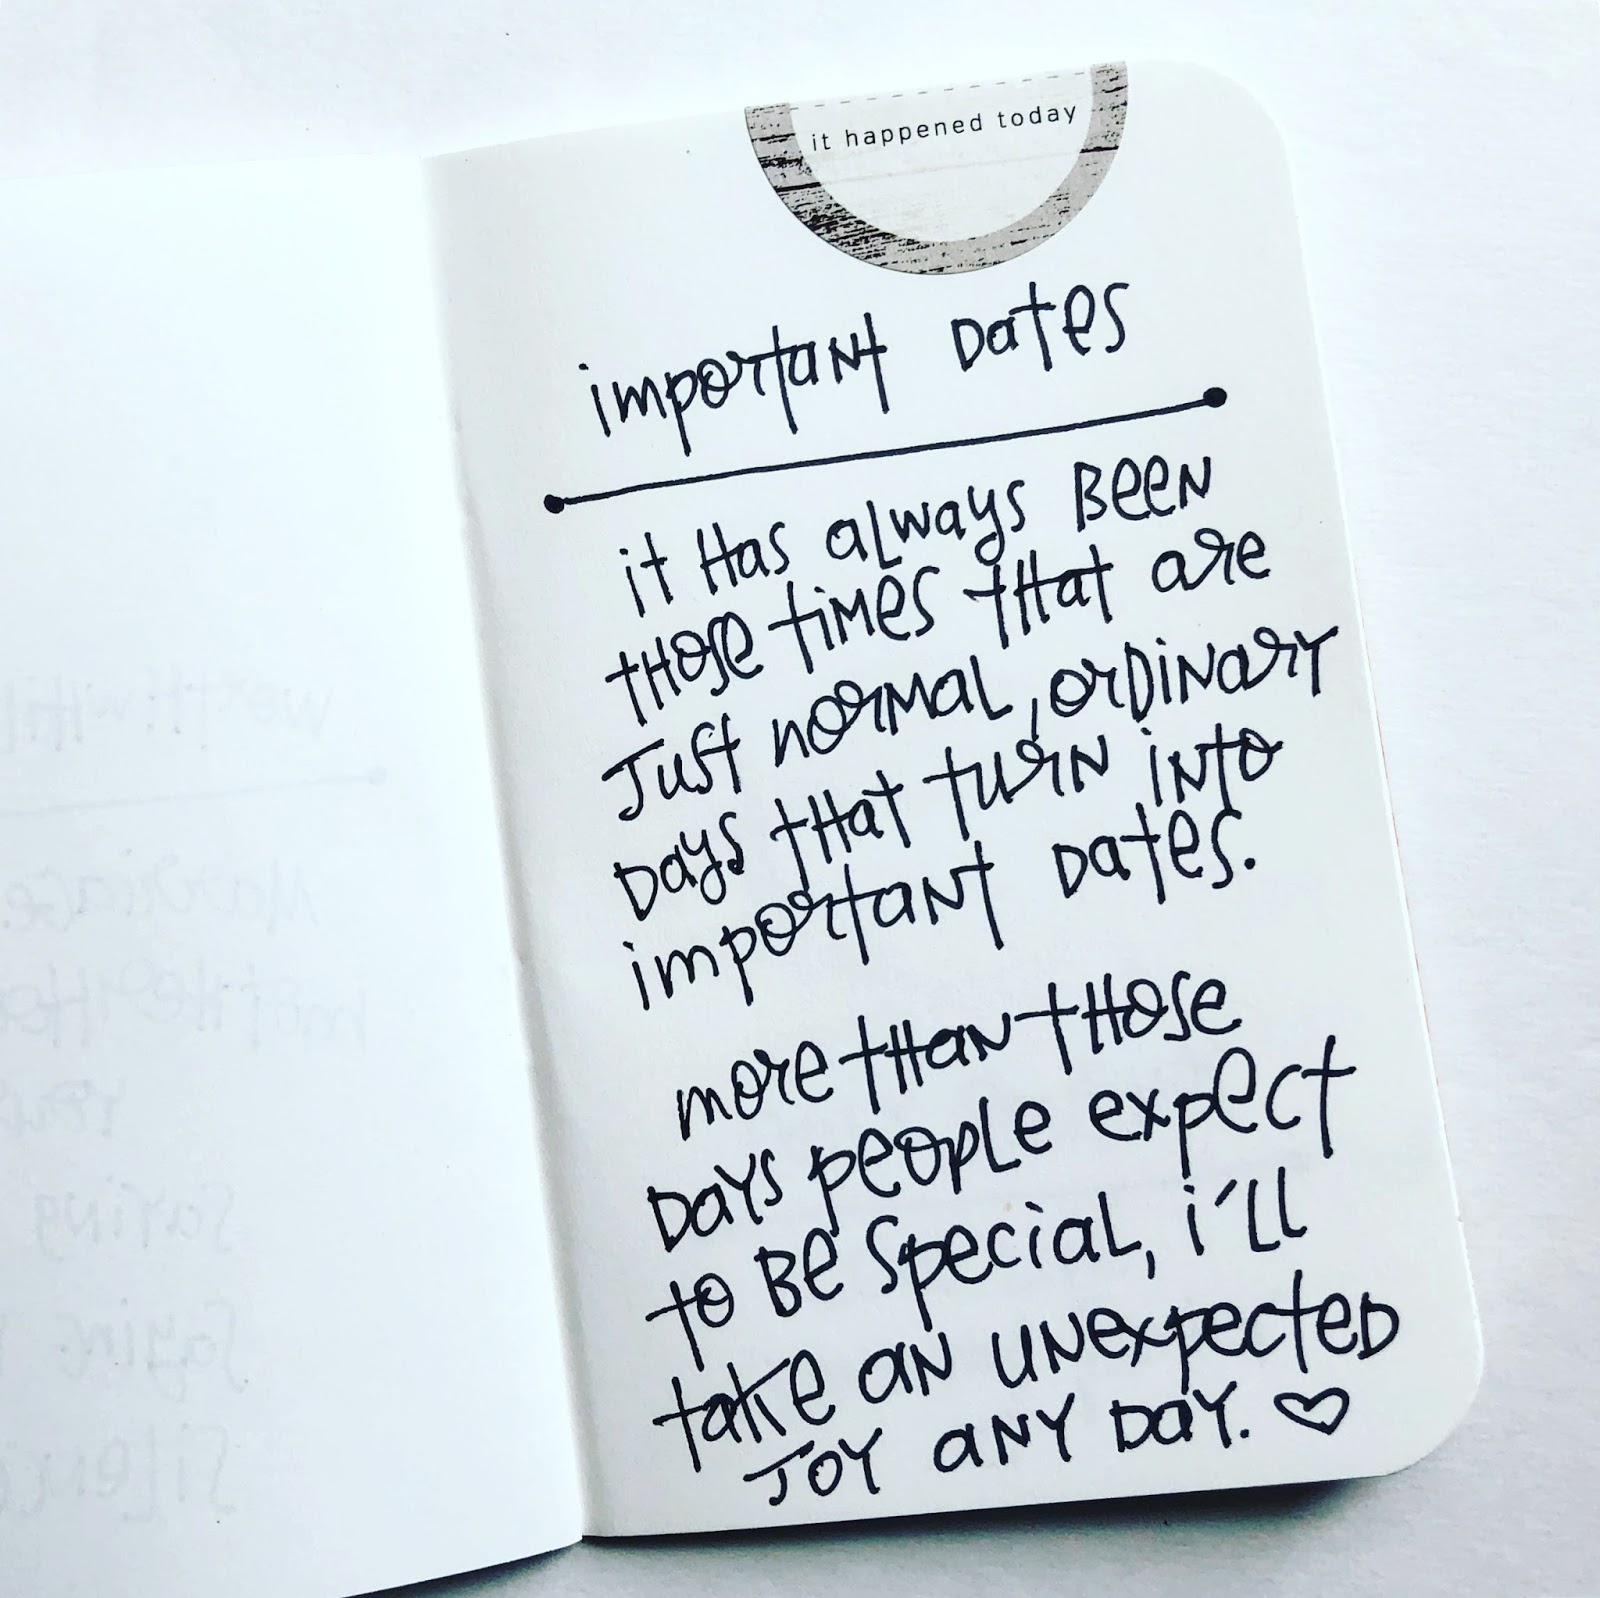 it happened today
important Dates
it Has always Been
tHose times tHat are
Just normal, orDinary
Days tHat turn into
important Dates.
more tHan tHose
Days people expect
to Be special, i'll
take an unexpected
Joy any Day. ♡